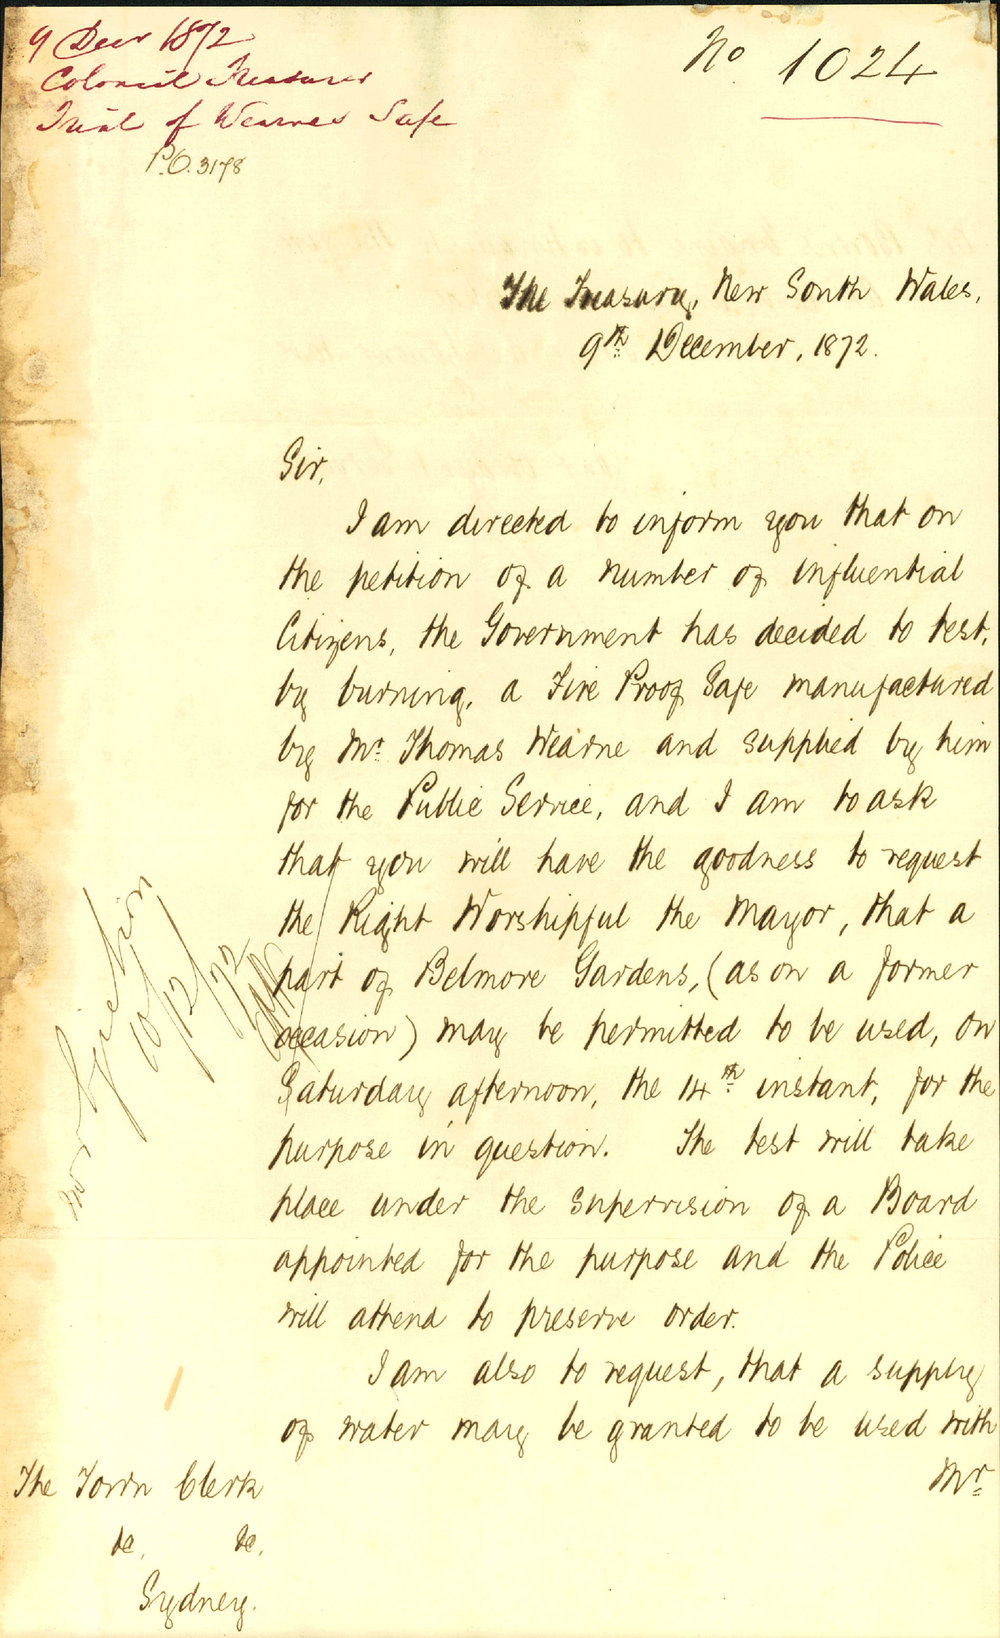 9 Decr 1872
Colonial Treasurer
Trial of Wearnes Safe
P.O. 3178
No 1024
The Treasury, New South Wales,
9th December, 1872.
Sir,
I am directed to inform you that on
the petition of a number of influential
Citizens, the Government has decided to test,
by burning, a Fire Proof Safe manufactured
by Mr. Thomas Wearne and supplied by him
for the Public Service, and I am to ask
that you will have the goodness to request
the Right Worshipful the Mayor, that a
part of Belmore Gardens, (as on a former
occasion) may be permitted to be used, on
Saturday afternoon, the 14th instant, for the
purpose in question. The test will take
place under the supervision of a Board
appointed for the purpose and the Police
will attend to preserve order.
I am also to request, that a supply
of water may be granted to be used with
Mr.
no objection
10/12/72
The Town Clerk
&c, &c,
Sydney.